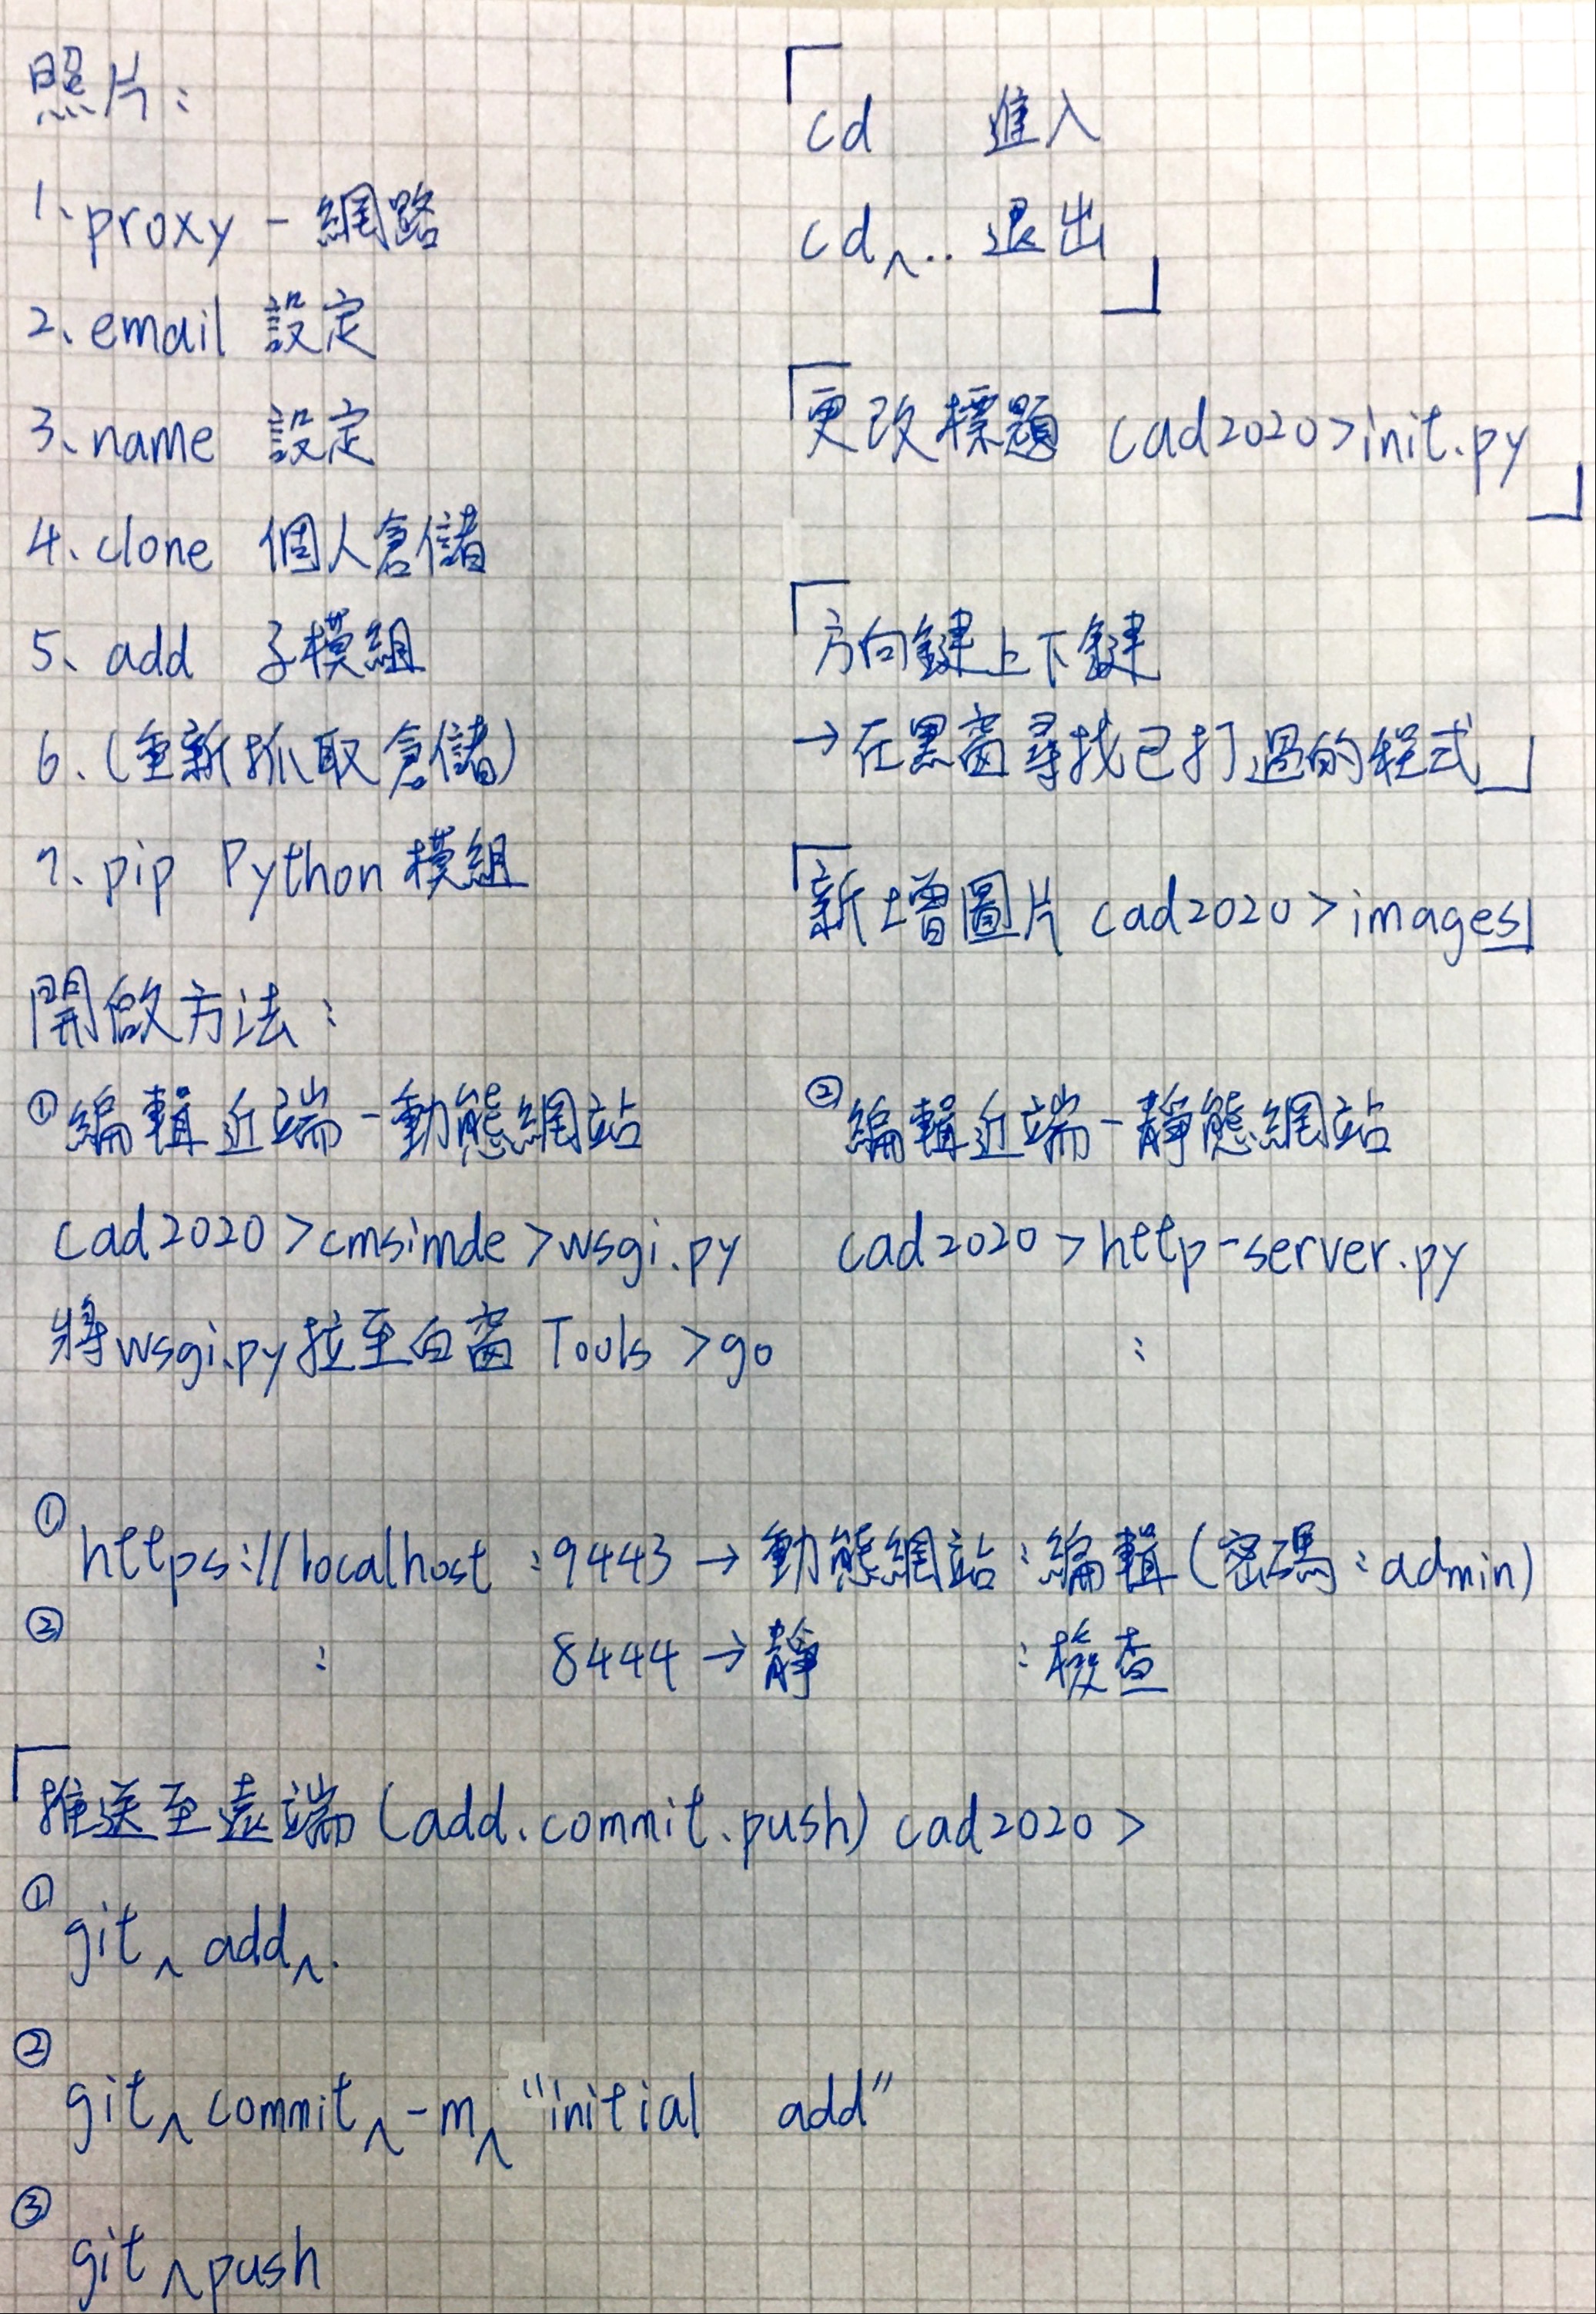 照片:
1、proxy - 網路
2、email 設定
3、name 設定
4、clone 個人倉儲
5、add 子模組
6、(重新抓取倉儲)
7、pip Python 模組
「cd 進入
cd^.. 退出」
「更改標題 cad2020>init.py」
「方向鍵上下鍵
→在黑窗尋找已打過的程式」
「新增圖片 cad2020>images」
開啟方法:
①編輯近端-動態網站
cad2020>cmsimde>wsgi.py
將wsgi.py拉至白窗 Tools >go
②編輯近端-靜態網站
cad2020>http-server.py
:
①https://localhost :9443→動態網站:編輯(密碼:admin)
② : 8444→靜 :檢查
「推送至遠端(add、commit、push) cad2020>
①git^add^.
②git^commit^-m^"initial add"
③git^push